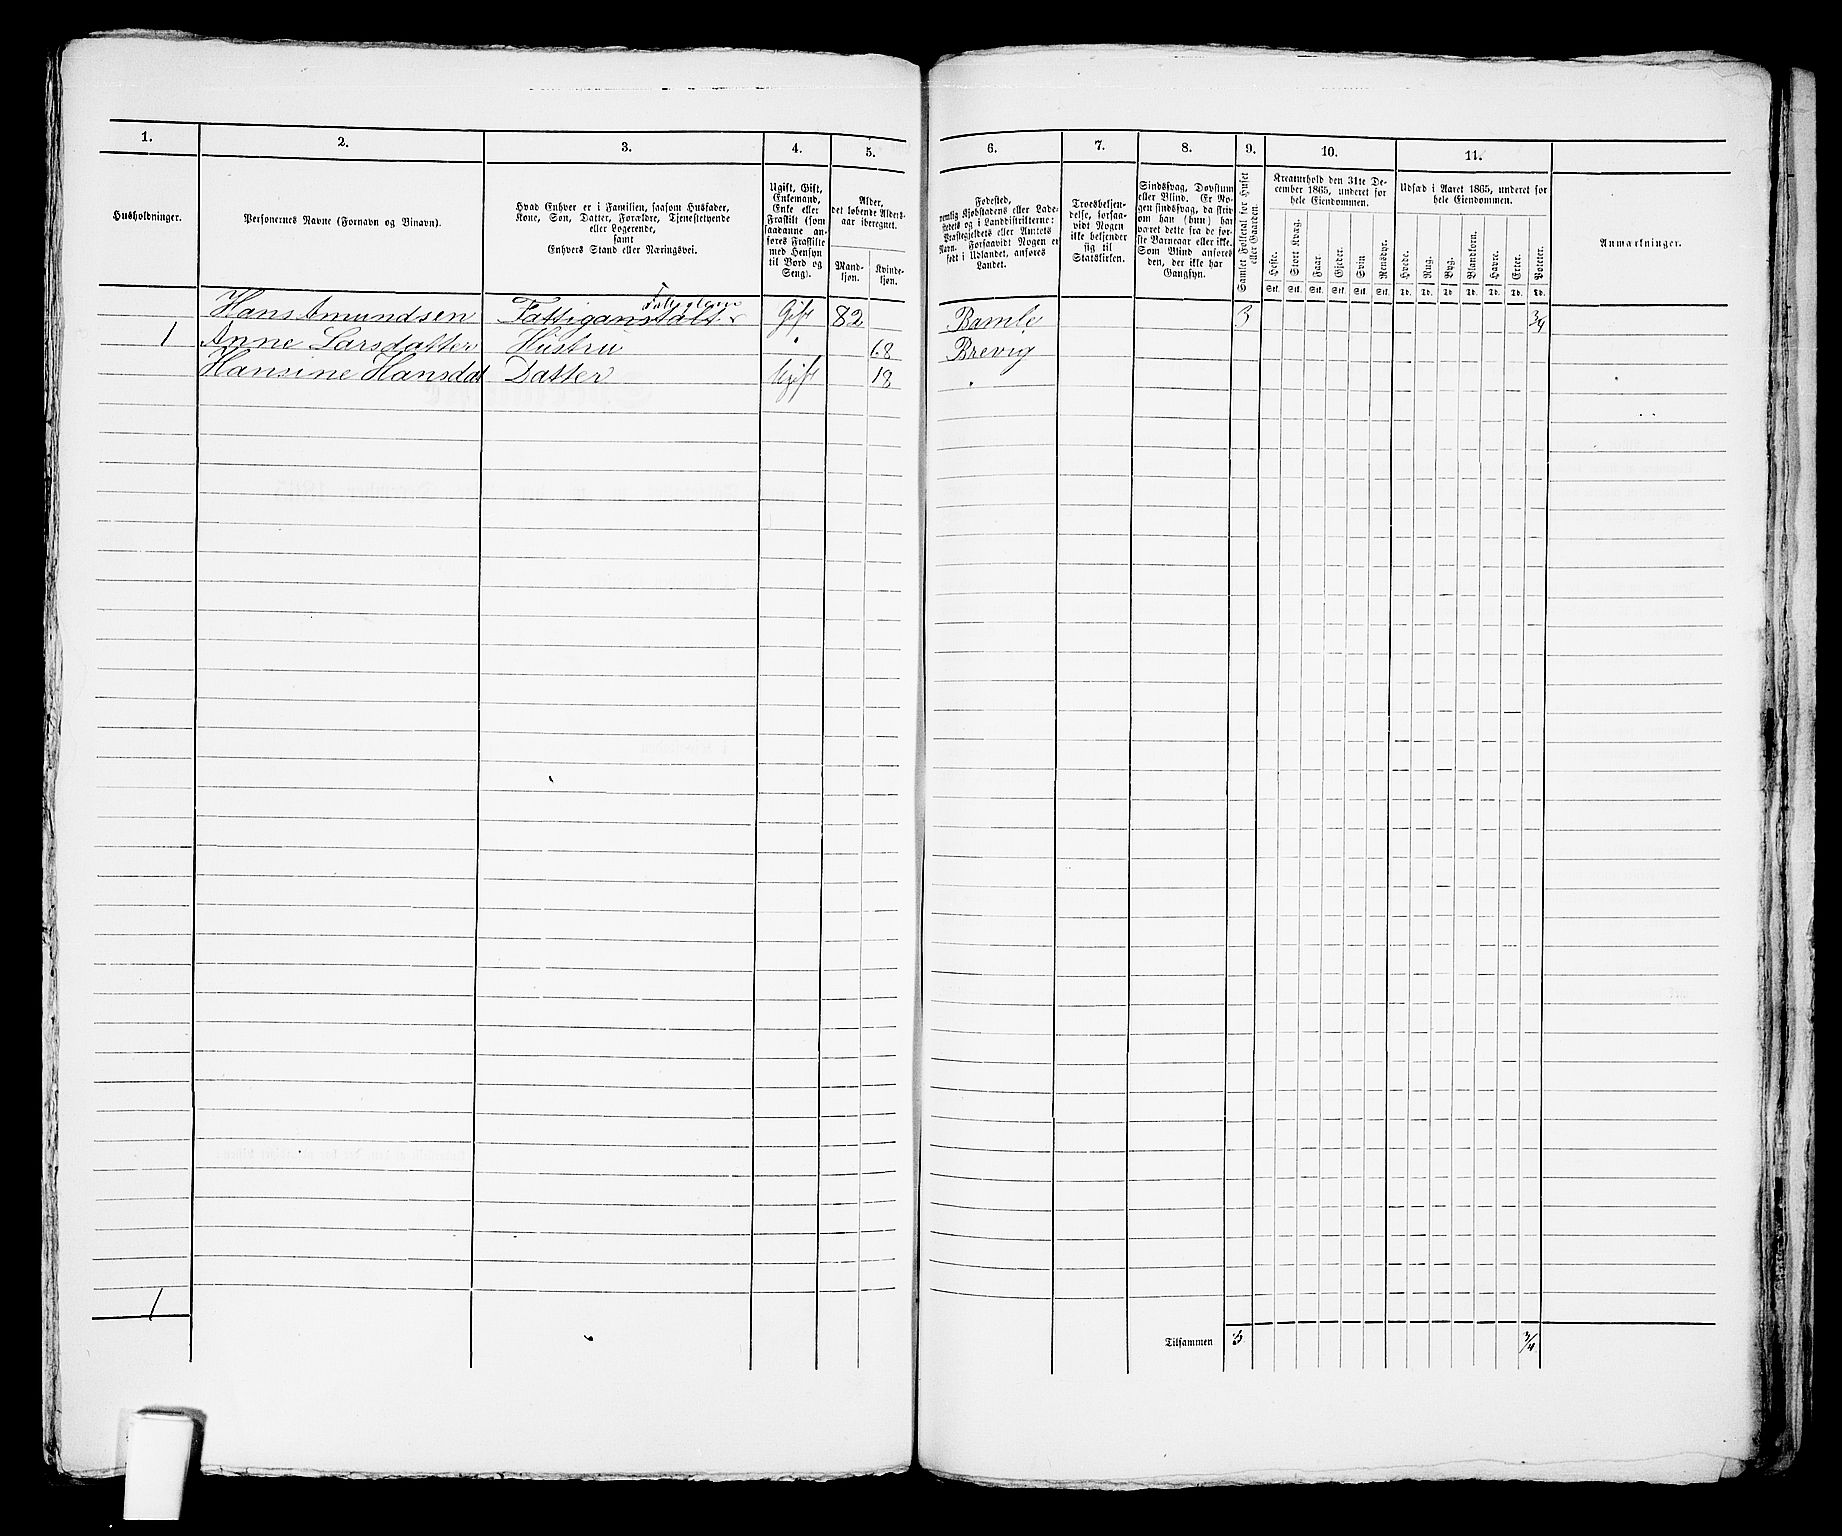 1.
2.
3.
4.
5.
Husholdninger.
Personernes Navne (Fornavn og Binavn).
Hvad Enhver er i Familien, saasom Husfader,
Kone, Søn, Datter, Forældre, Tjenestetyende
eller Logerende,
samt
Enhvers Stand eller Næringsvei.
Ugift, Gift,
Enkemand,
Enke eller
Fraskilt (som
saadanne an-
føres Fraskilte
med Hensyn
til Bord og
Seng).
Alder,
det løbende Alders-
aar iberegnet.
Mand-
kjøn.
Kvinde-
kjøn.
Hans Amundsen Fattiganstalt Gift 82
1 Anne Larsdatter Hustru " 68
Hansine Hansdat Datter Ugift 18
1
6.
7.
8.
9.
10.
11.
Fødested,
nemlig Kjøbstadens eller Lade-
stedets og i Landdistrikterne:
Præstegjeldets eller Amtets
Navn. Forsaavidt Nogen er
født i Udlandet, anføres
Landet.
Troesbekjen-
delse, forsaa-
vidt Nogen
ikke bekjender
sig til
Statskirken.
Sindssvag, Døvstum
eller Blind. Er No-
gen sindssvag, da skriv
om han (hun) har
været dette fra de før-
ste Barneaar eller ikke.
Som Blind anføres
den, der ikke har
Gangsyn.
Samlet Folketal for Huset
eller Gaarden.
Kreaturhold den 31te De-
cember 1865, underet for
hele Eiendommen.
Heste.
Stort Kvæg.
Faar.
Gjeder.
Svin
Rensdyr.
Stk. Stk. Stk. Stk. Stk. Stk.
Udsæd i Aaret 1865, underet for
hele Eiendommen.
Hvede.
Rug.
Byg.
Blandkorn.
Havre.
Erter.
Poteter.
Td. Td. Td. Td. Td. Td. Td.
Anmærkninger.
Bamle 3 3/4
Brevig
"
Tilsammen 3 3/4